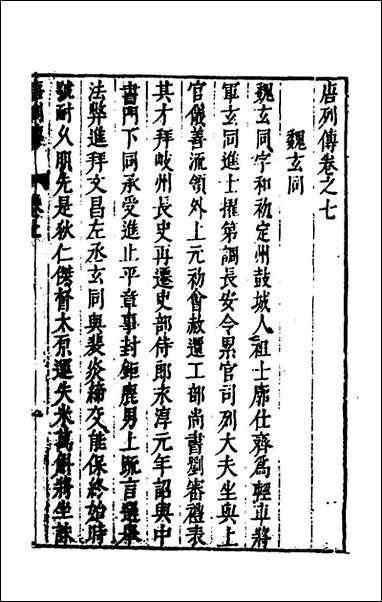 唐列傳卷之七
魏玄同
魏玄同字和初定州鼓城人祖士廓仕齊爲輕車將
軍玄同進士擢第調長安令累官司列大夫坐與上
官儀善流領外上元初會赦還工部尚書劉審禮表
其才拜岐州長史再遷吏部侍郎永淳元年詔與中
書門下同承受進止平章事封鉅鹿男上既言選舉
法弊進拜文昌左丞玄同與裴炎締交能保終始時
號耐久朋先是狄仁傑督太原運失米萬斛將坐誅